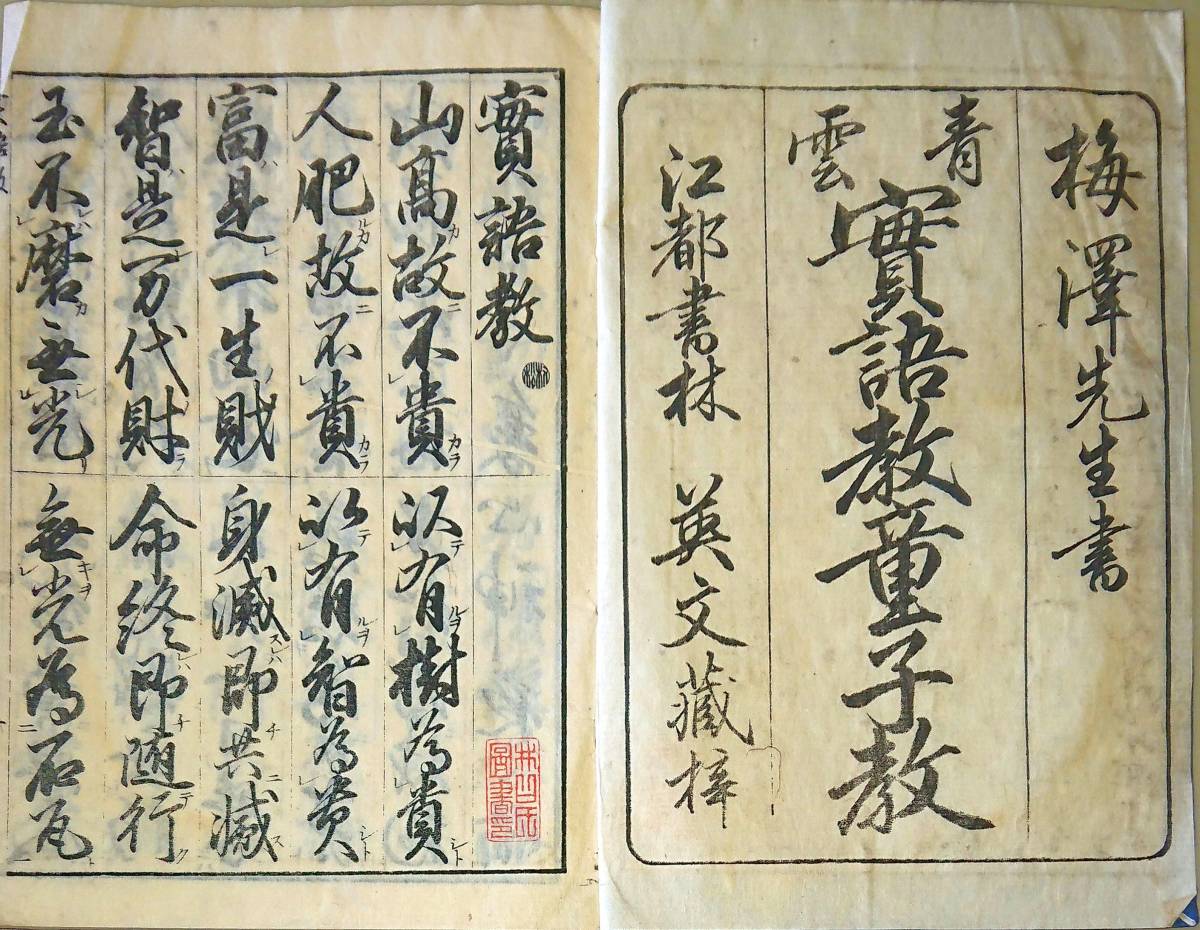 梅澤先生書
青雲
實語教童子教
江都書林 英文藏梓
實語教
山高故不貴 以有樹為貴
人肥故不貴 以有智為貴
富是一生財 身滅即共滅
智是万代財 命終即随行
玉不磨無光 無光為石瓦